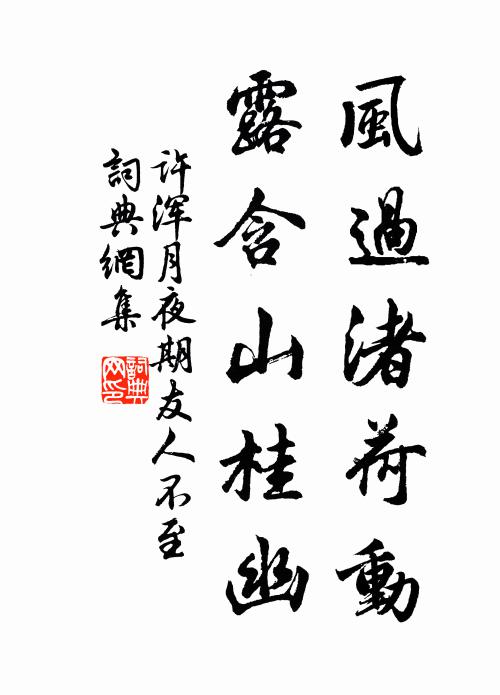 風過渚荷動
露含山桂幽
许浑月夜期友人不至
詞典網集
詞典
网印